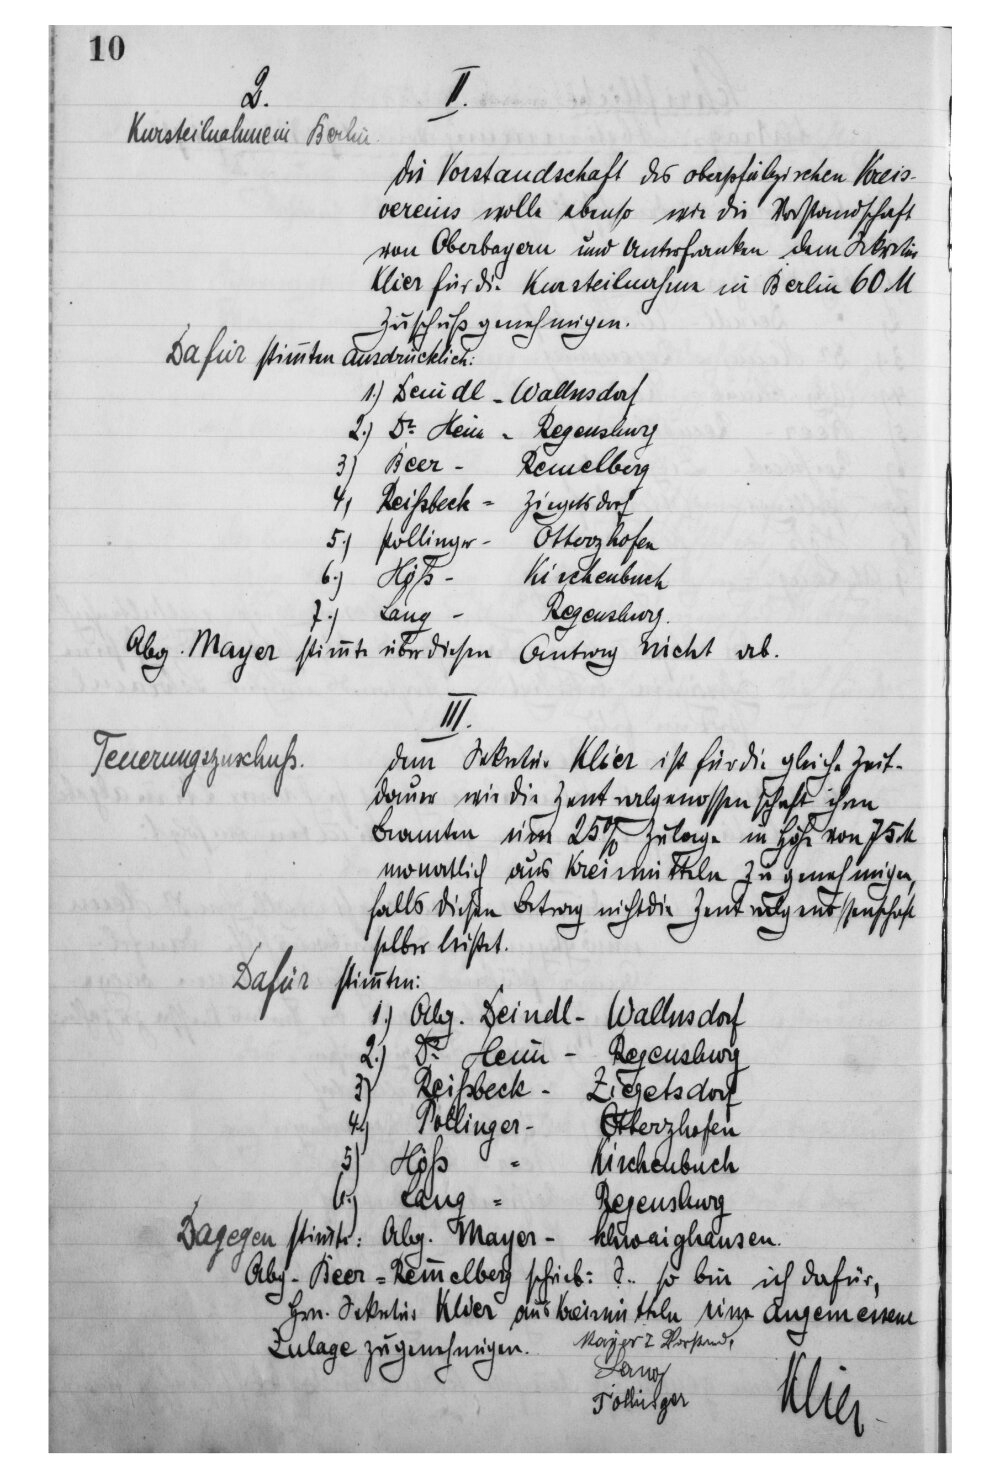 10
2. II.
Kursteilnahme in Berlin.
Die Vorstandschaft des oberpfälzischen Kreis-
vereins wolle ebenso wie die Vorstandschaft
von Oberbayern und Unterfranken dem Sekretär
Klier für die Kursteilnahme in Berlin 60 M
Zuschuß genehmigen.
Dafür stim̄ten ausdrücklich:
1.) Deindl - Wallnsdorf
2.) Dr. Heim - Regensburg
3) Beer - Remelberg
4, Reißbeck - Ziegetsdorf
5.) Pollinger - Otterzhofen
6.) Höß - Kirchenbuch
7.) Lang - Regensburg.
Abg. Mayer stim̄te über diesen Antrag nicht ab.
III.
Teuerungszuschuß.
Dem Sekretär Klier ist für die gleiche Zeit-
dauer wie die Zentralgenossenschaft ihren
Beamten eine 25% Zulage in Höhe von 75 M
monatlich aus Kreismitteln zu genehmigen,
falls diesen Betrag nicht die Zentralgenossenschaft
selber leistet.
Dafür stim̄ten:
1.) Abg. Deindl - Wallnsdorf
2.) Dr. Heim - Regensburg
3) Reißbeck - Ziegetsdorf
4.) Pollinger - Otterzhofen
5) Höß - Kirchenbuch
6.) Lang - Regensburg
Dagegen stim̄te: Abg. Mayer - Schwaighausen.
Abg. Beer = Rem̄elberg schrieb: so bin ich dafür,
Hrn. Sekretär Klier aus Kreismitteln eine angemessene
Zulage zu genehmigen. Mayer Vorstand,
Lang
Pollinger
Klier